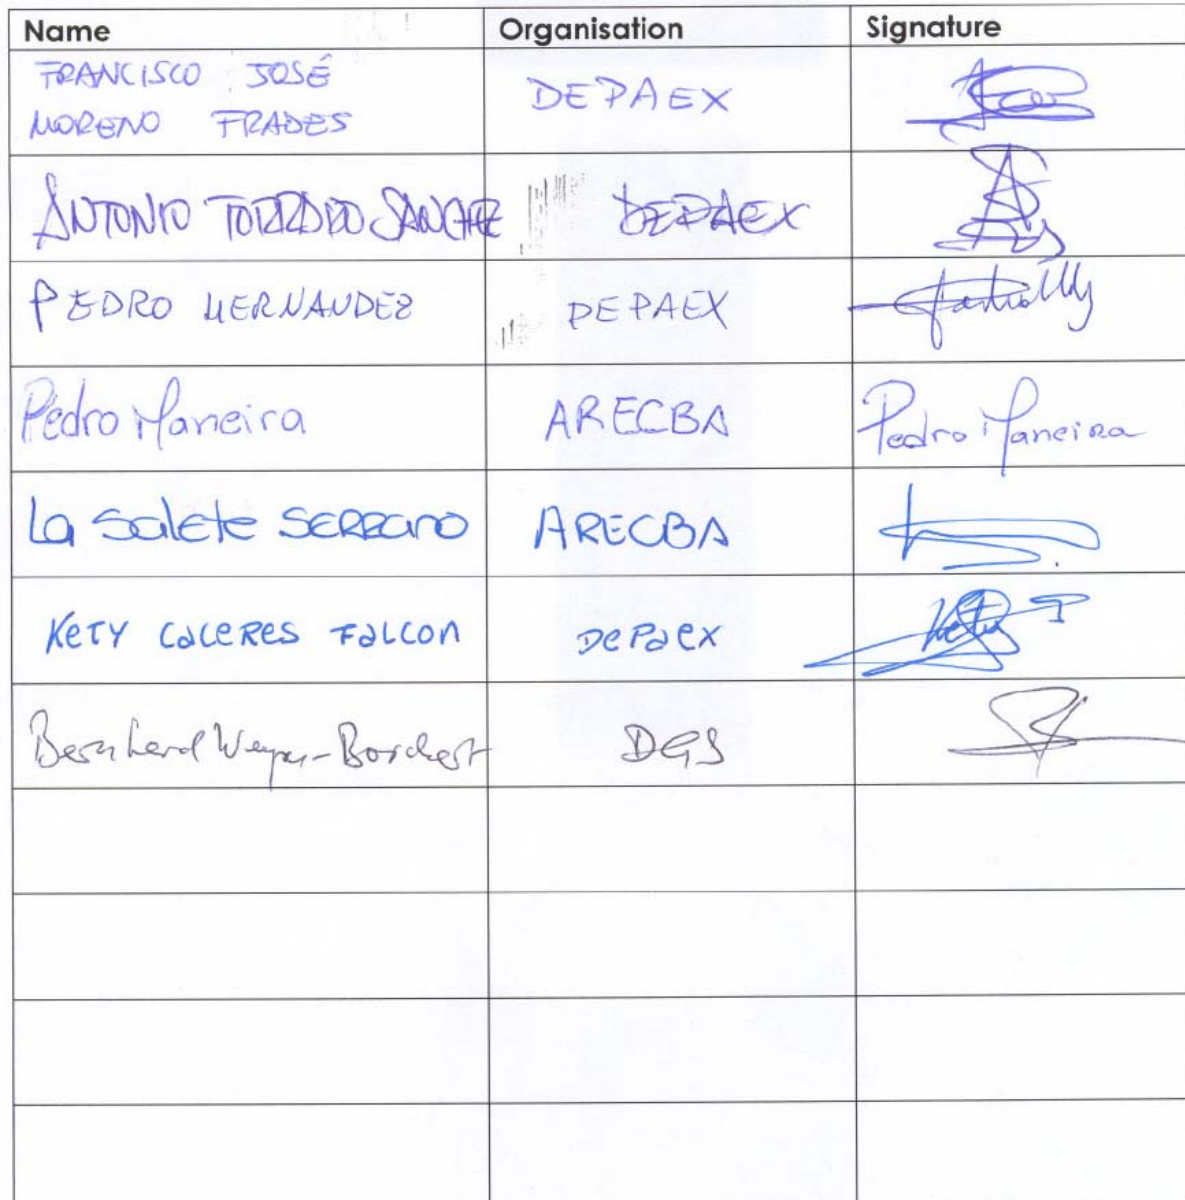 Name Organisation Signature
FRANCISCO JOSÉ
MORENO FRADES DEPAEX
ANTONIO TORRADO SANCHEZ DEPAEX
PEDRO HERNANDEZ DEPAEX
Pedro Maneira ARECBA Pedro Maneira
La Salete SERRANO ARECBA
KETY CACERES FALCON DEPAEX
Bernhard DGS